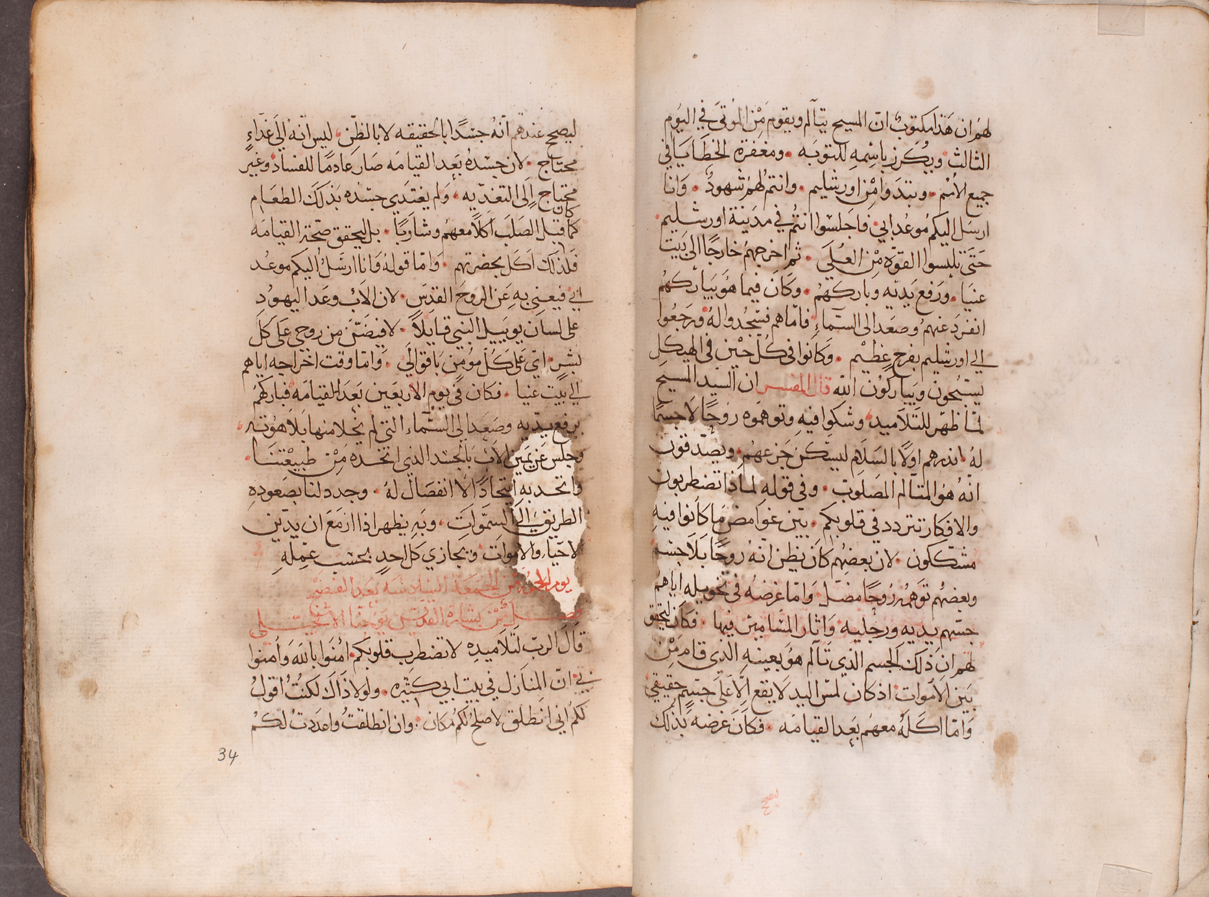 لهم ان هذا مكتوب ان المسيح يتالم ويقوم من الموتى في اليوم
الثالث ويكرز باسمه للتوبه ومغفرة الخطايا في
جميع الامم وتبتدوا من اورشليم وانتم لهم شهود وانا
ارسل اليكم موعد ابي فاجلسوا انتم في مدينة اورشليم
حتى تلبسوا القوه من العلى ثم اخرجهم خارجا الى بيت
عنيا ورفع يديه وباركهم وكان فيما هو يباركهم
انفرد عنهم وصعد الى السماء فاما هم فسجدوا له ورجعوا
الى اورشليم بفرح عظيم وكانوا في كل حين في الهيكل
يسبحون ويباركون الله قال المفسر ان السيد المسيح
لما ظهر للتلاميد وشكوا فيه وتوهموه روحا لا جسما
له انذرهم اولا بالسلام ليسكن جزعهم ويصدقون
انه هو المتالم المصلوب وفي قوله لماذا تضطربون
والافكار تتردد في قلوبكم بين غوامض ما كانوا فيه
مشككون لان بعضهم كان يظن انه روحا بلا جسد
وبعضهم توهمه روحا مضل واما غرضه في تحويله اياهم
جسهم يديه ورجليه واثار المسامير فيها فكان ليحقق
لهم ان ذلك الجسم الذي تالم هو بعينه الدي قام من
بين الاموات اذ كان لمس اليد لا يقع الا على جسم حقيقي
واما اكله معهم بعد القيامه فكان غرضه بذلك
ليصح عندهم انه جسدا بالحقيقه لا بالظن ليس انه الى غداء
محتاج لان جسده بعد القيامه صار عادما للفساد وغير
محتاج الى التغديه ولم يغتدي جسده بذلك الطعام
كما كان قبل الصلب اكلا معهم وشاربا بل ليحقق صحة القيامه
فلذلك اكل بحضرتهم واما قوله وانا ارسل اليكم موعد
ابي فيعني به عن الروح القدس لان الاب وعد اليهود
على لسان يوييل النبي قايلا لافيضن من روحي على كل
بشر اي على كل مومن باقوالي واما وقت اخراجه اياهم
الى بيت عنيا فكان في يوم الاربعين بعد القيامه فباركهم
برفع يديه وصعد الى السماء التي لم تخلا منها بلاهوته
وجلس عن يمين الاب بالجسد الدي اتخده من طبيعتنا
واتحد به اتحادا لا انفصال له وجدد لنا بصعوده
الطريق الى السموات وبه يظهر اذا ازمع ان يدين
الاحيا والاموات ويجازي كل احد بحسب عمله
يوم الجمعة السادسه بعد الفصح
من بشارة القديس يوحنا الانجيلي
قال الرب لتلاميده لا تضطرب قلوبكم امنوا بالله وامنوا
بي ان المنازل في بيت ابي كثيره ولولا ذاك لكنت اقول
لكم اني انطلق لاصلح لكم مكان وان انطلقت واعددت لكم
34